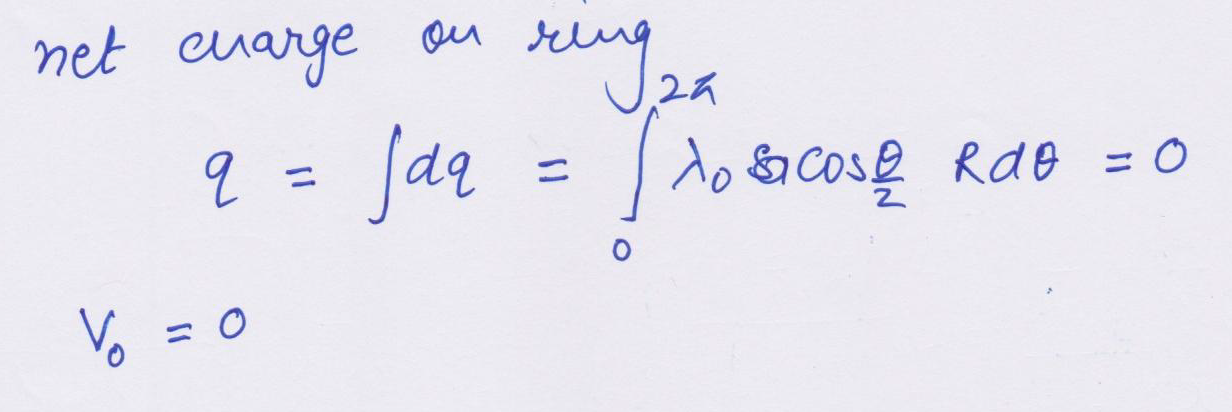 net charge on ring
q = ∫dq = ∫₀^{2π} λ₀ cos θ/2 R dθ = 0
V₀ = 0